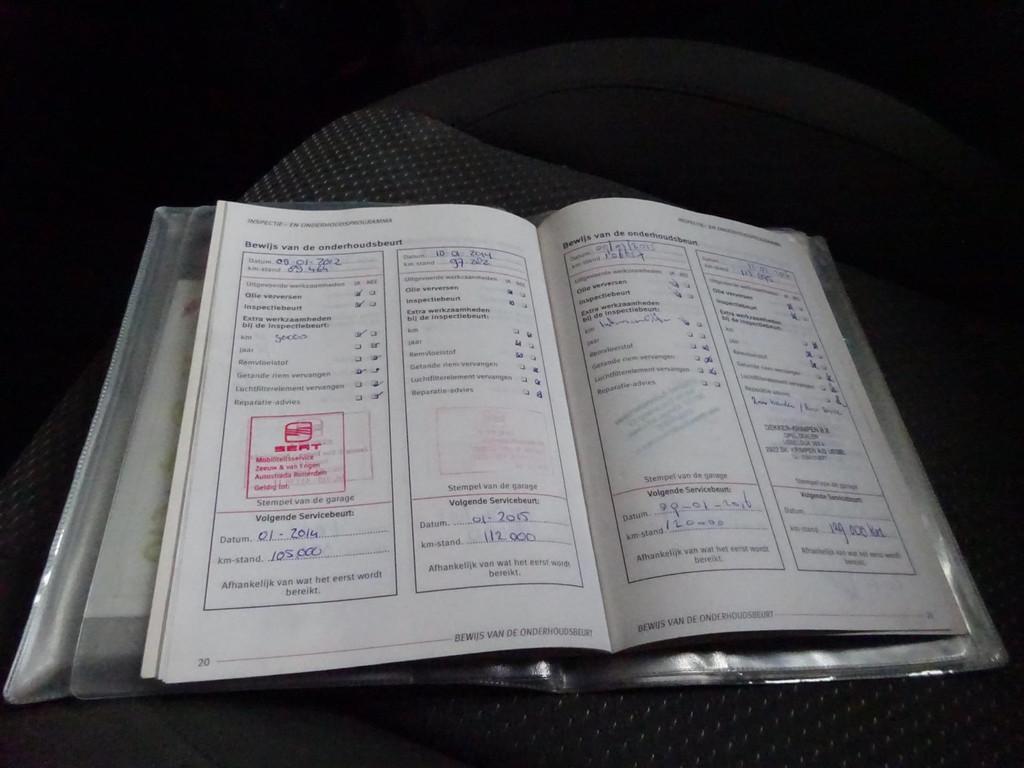 INSPECTIE- EN ONDERHOUDSPROGRAMMA
Bewijs van de onderhoudsbeurt
Datum 09-01-2012
km-stand
Uitgevoerde werkzaamheden JA NEE
Olie verversen
Inspectiebeurt
Extra werkzaamheden
bij de inspectiebeurt:
km
jaar
Remvloeistof
Getande riem vervangen
Luchtfilterelement vervangen
Reparatie-advies
SEAT
Mobiliteitsservice
Zeeuw & van Eijgen
Autostrada Rotterdam
Geldig tot:
Stempel van de garage
Volgende Servicebeurt:
Datum. 01-2014
km-stand. 105.000
Afhankelijk van wat het eerst wordt
bereikt.
Datum 10-01-2014
km-stand 97.282
Uitgevoerde werkzaamheden JA NEE
Olie verversen
Inspectiebeurt
Extra werkzaamheden
bij de inspectiebeurt:
km
jaar
Remvloeistof
Getande riem vervangen
Luchtfilterelement vervangen
Reparatie-advies
Stempel van de garage
Volgende Servicebeurt:
Datum. 01-2015
km-stand. 112.000
Afhankelijk van wat het eerst wordt
bereikt.
20
BEWIJS VAN DE ONDERHOUDSBEURT
INSPECTIE- EN ONDERHOUDSPROGRAMMA
Bewijs van de onderhoudsbeurt
Datum
km-stand
Uitgevoerde werkzaamheden JA NEE
Olie verversen
Inspectiebeurt
Extra werkzaamheden
bij de inspectiebeurt:
km
jaar
Remvloeistof
Getande riem vervangen
Luchtfilterelement vervangen
Reparatie-advies
Stempel van de garage
Volgende Servicebeurt:
Datum. 09-01-2016
km-stand 120.000
Afhankelijk van wat het eerst wordt
bereikt.
Datum
km-stand
Uitgevoerde werkzaamheden JA NEE
Olie verversen
Inspectiebeurt
Extra werkzaamheden
bij de inspectiebeurt:
km
jaar
Remvloeistof
Getande riem vervangen
Luchtfilterelement vervangen
Reparatie-advies
DEKKER-KRIMPEN B.V.
OPEL DEALER
KRIMPEN A/D IJSSEL
Stempel van de garage
Volgende Servicebeurt:
Datum.
km-stand.
Afhankelijk van wat het eerst wordt
bereikt.
BEWIJS VAN DE ONDERHOUDSBEURT
21